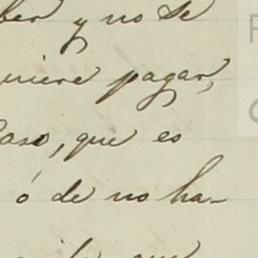 ber y no se
uiere pagar,
Caso, que es
ó de no ha-
que